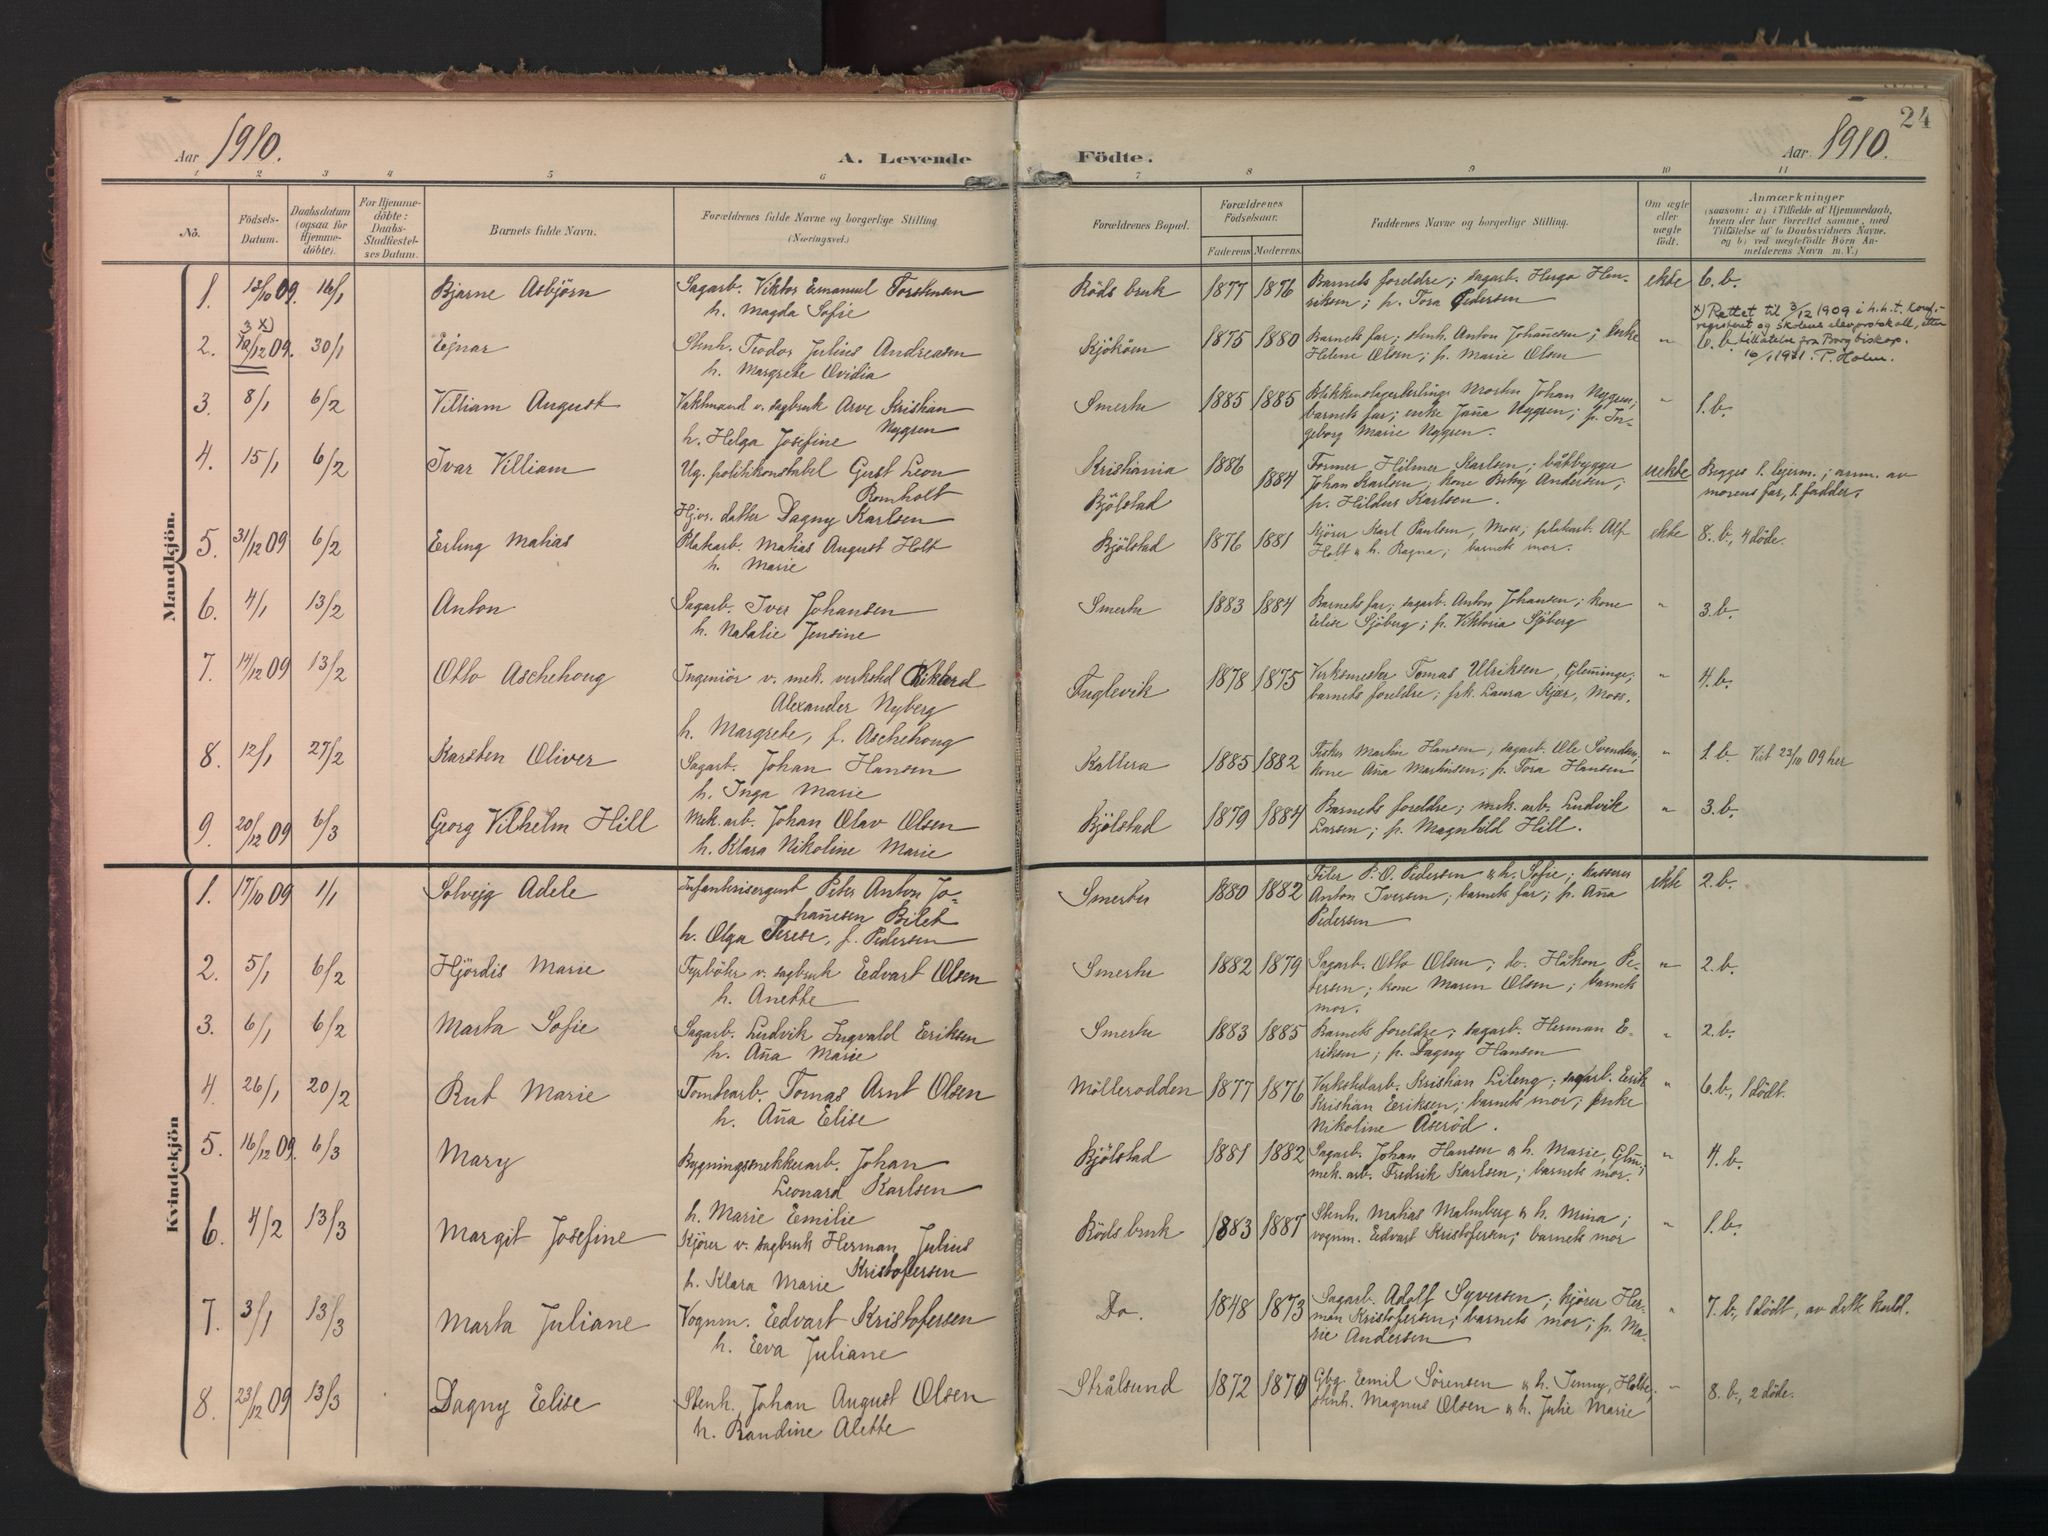 24
Aar 1910.
A. Levende Födte.
Aar 1910.
1 2 3 4 5 6 7 8 9 10 11
No.
Födsels-Datum.
Daabsdatum (ogsaa for Hjemme-döbte).
For Hjemme-döbte: Daabs-Stadfæstel-ses Datum.
Barnets fulde Navn.
Forældrenes fulde Navne og borgerlige Stilling.
(Næringsvei.)
Forældrenes Bopæl.
Forældrenes Födselsaar.
Faderens Moderens.
Faddernes Navne og borgerlige Stilling.
Om ægte eller uægte födt.
Anmærkninger
(saasom: a) i Tilfælde af Hjemmedaab,
hvem der har forrettet samme, med
Tilföielse af to Daabsvidners Navne.
og b) ved uægtefödte Börn An-
melderens Navn m. V.)
Mandkjön.
1. 13/10 09. 16/1 Bjarne Asbjörn Sagarb. Viktor Emanuel Torstensen
h. Magda Sofie
Röds bruk 1877 1876 Barnets foreldre; sagarb. Hugo Hen-
riksen; p. Tora Pedersen
ekte 6. b.
2. 3 x) /12 09. 30/1 Ejnar Stenh. Teodor Julius Andreasen
h. Margrete Ovidia
Kjököen 1875 1880 Barnets far; stenh. Anton Johañesen; enke
Helene Olsen; p. Marie Olsen
" 6. b.
x) Rettet til 3/12 1909 i h.h.t. konf.-
register og skolens elevprotokoll, etter
tillatelse fra Borg biskop.
P. Holm.
3. 8/1 6/2 Villiam August Vaktmand v. sagbruk Arve Kristian
Nygren
h. Helga Josefine
Smertu 1885 1885 Morten Johan Nygren;
barnets far; enke Jaña Nygren; p. In-
geborg Marie Nygren.
" 1. b.
4. 15/1 6/2 Ivar Villiam Ug. politikonstabel Gust Leon
Romholt
Hjv. datter Dagny Karlsen
Kristiania
Bjölstad
1886
1884
Former Hilmer Karlsen; båtbygger
Johan Karlsen; kone Betsy Andersen;
p. Hildur Karlsen.
uekte Begges 1. lejerm.; anm. av
morens far, 1. fadder.
5. 31/12 09 6/2 Erling Matias Platearb. Matias August Holt
h. Marie
Bjölstad 1876 1881 Kjörer Karl Paulsen, Moss; platearb. Alf
Holt & h. Ragna; barnets mor.
ekte 8. b., 4 döde.
6. 4/1 13/2 Anton Sagarb. Iver Johansen
h. Natalie Jensine
Smertu 1883 1884 Barnets far; sagarb. Anton Johansen; kone
Elise Sjöberg; p. Viktoria Sjöberg
" 3. b.
7. 14/12 09 13/2 Otto Aschehoug Ingeniör v. mek. verksted Rikhard
Alexander Nyberg
h. Margrete, f. Aschehoug
Fuglevik 1878 1875 Verksmester Tomas Ulriksen, Glem̃inge;
barnets foreldre; frk. Laura Kjær, Moss.
" 4. b.
8. 12/1 27/2 Karsten Oliver Sagarb. Johan Hansen
h. Inga Marie
Kallera 1885 1882 Fisker Martin Hansen; sagarb. Ole Svendsen;
kone Aña Martinsen; p. Tora Hansen
" 1. b. Viet 23/10 09 her
9. 20/12 09 6/3 Georg Vilhelm Hill Mek. arb. Johan Olav Olsen
h. Klara Nikoline Marie
Bjölstad 1879 1884 Barnets foreldre; mek. arb. Ludvik
Larsen; p. Magnhild Hill.
" 3. b.
Kvindekjön
1. 17/10 09 1/1 Solvejg Adele Infanterisergent Peter Anton Jo-
hañesen Bilet
h. Olga Terese, f. Pedersen
Smertu 1880 1882 Filer P. O. Pedersen & h. Sofie; kasserer
Anton Iversen; barnets far; p. Aña
Pedersen
ekte 2. b.
2. 5/1 6/2 Hjördis Marie Fyrböter v. sagbruk Edvart Olsen
h. Anette
Smertu 1882 1879 Sagarb. Otto Olsen; do. Håkon Pe-
tersen; kone Maren Olsen; barnets
mor.
" 2. b.
3. 6/1 6/2 Marta Sofie Sagarb. Ludvik Ingvald Eriksen
h. Aña Marie
Smertu 1883 1885 Barnets foreldre; sagarb. Herman E-
riksen; p. Dagny Hansen
" 2. b.
4. 26/1 20/2 Rut Marie Tomtearb. Tomas Arnt Olsen
h. Aña Elise
Mölleroden 1877 1876 Verkstedarb. Kristian Lileng; sagarb. Eerik
Kristian Eeriksen; barnets mor; enke
Nikoline Åseröd.
" 6. b., 1 dödt.
5. 16/12 09. 6/3 Mary Bygningssnekkerarb. Johan
Leonard Karlsen
h. Marie Emilie
Bjölstad 1881 1882 Sagarb. Johan Hansen & h. Marie, Glem̃;
mek. arb. Fredrik Karlsen; barnets mor.
" 4. b.
6. 4/2 13/3 Margit Josefine Kjörer v. sagbruk Herman Julius
Kristofersen
h. Klara Marie
Röds bruk 1883 1887 Stenh. Matias Malmberg & h. Mina;
vognm. Edvart Kristofersen; barnets mor
" 1. b.
7. 3/1 13/3 Marta Juliane Vognm. Edvart Kristofersen
h. Eva Juliane
Do. 1848 1873 Sagarb. Adolf Syversen; kjörer Her-
man Kristofersen; barnets mor; p. Ma-
rie Andersen
" 7. b., 1 dödt, av dette kuld.
8. 23/12 09 13/3 Dagny Elise Stenh. Johan August Olsen
h. Randine Alette
Strålsund 1872 1870 Gbg. Emil Sörensen & h. Jenny,
stenh. Magnus Olsen & h. Julie Marie
" 8. b., 2 döde.